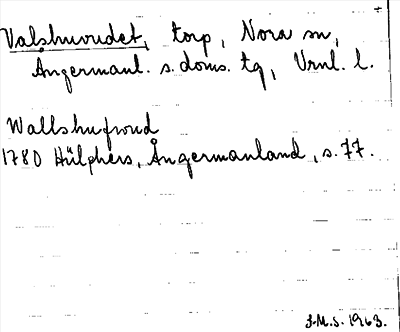 Valshuvudet, torp, Nora sn,
Ångermanl. s. doms. tg, Vrnl. l.
Wallshufwud
1780 Hülphers, Ångermanland, s. 77.
J.M.S. 1963.